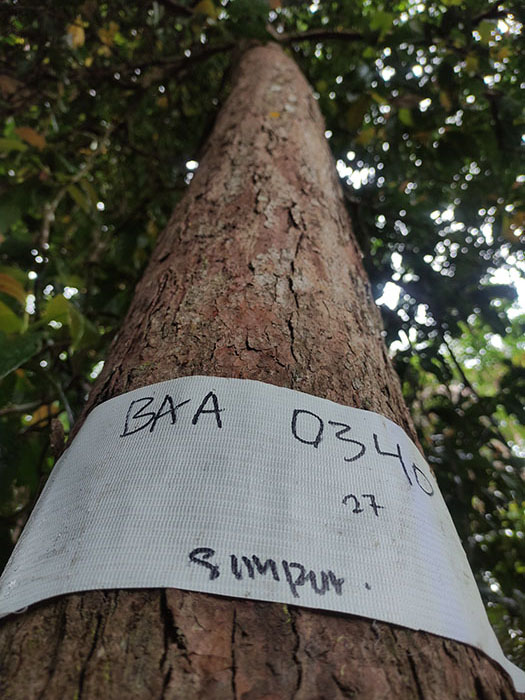 BAA 0340
27
Simpur.